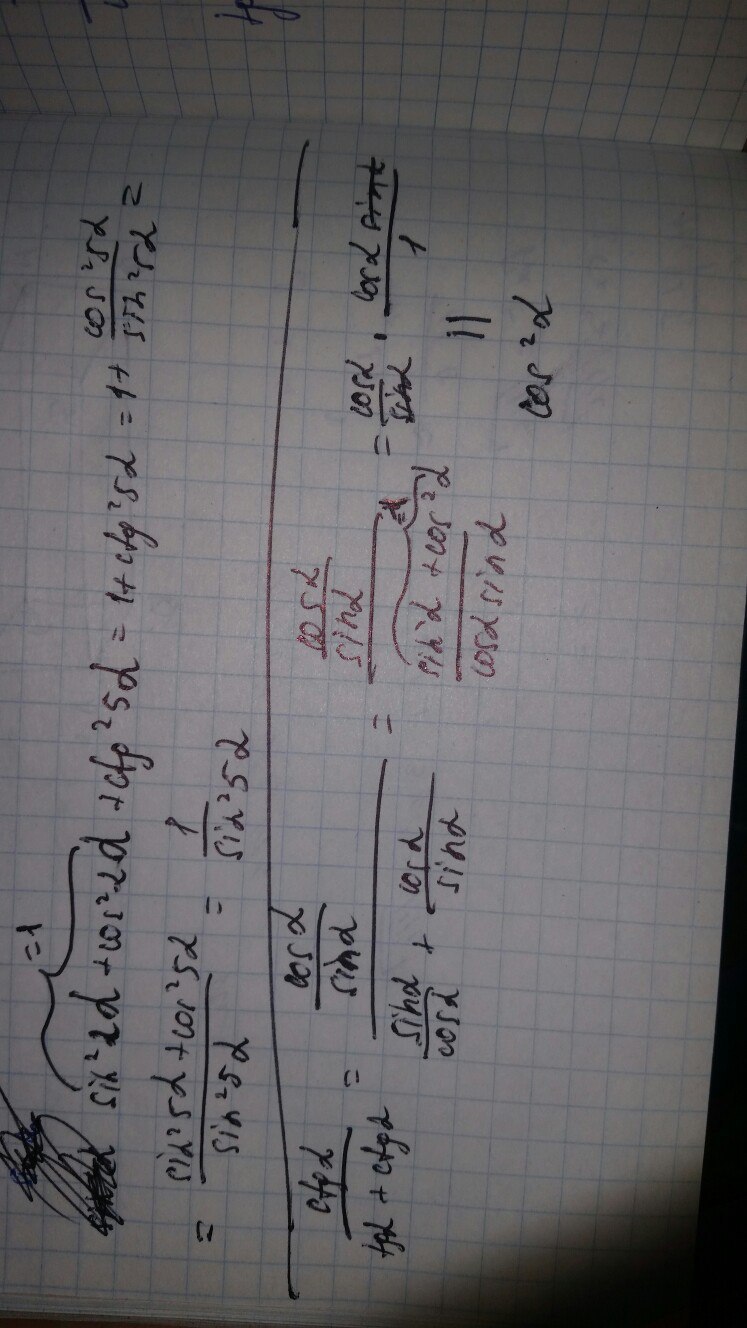 =1
sin²2α + cos²2α + ctg²5α = 1 + ctg²5α = 1 + cos²5α / sin²5α =
= sin²5α + cos²5α / sin²5α = 1 / sin²5α
ctgα / tgα + ctgα = cosα / sinα / sinα / cosα + cosα / sinα = cosα / sinα / sin²α + cos²α =1 / cosα sinα = cosα / sinα · cosα sinα / 1
||
cos²α